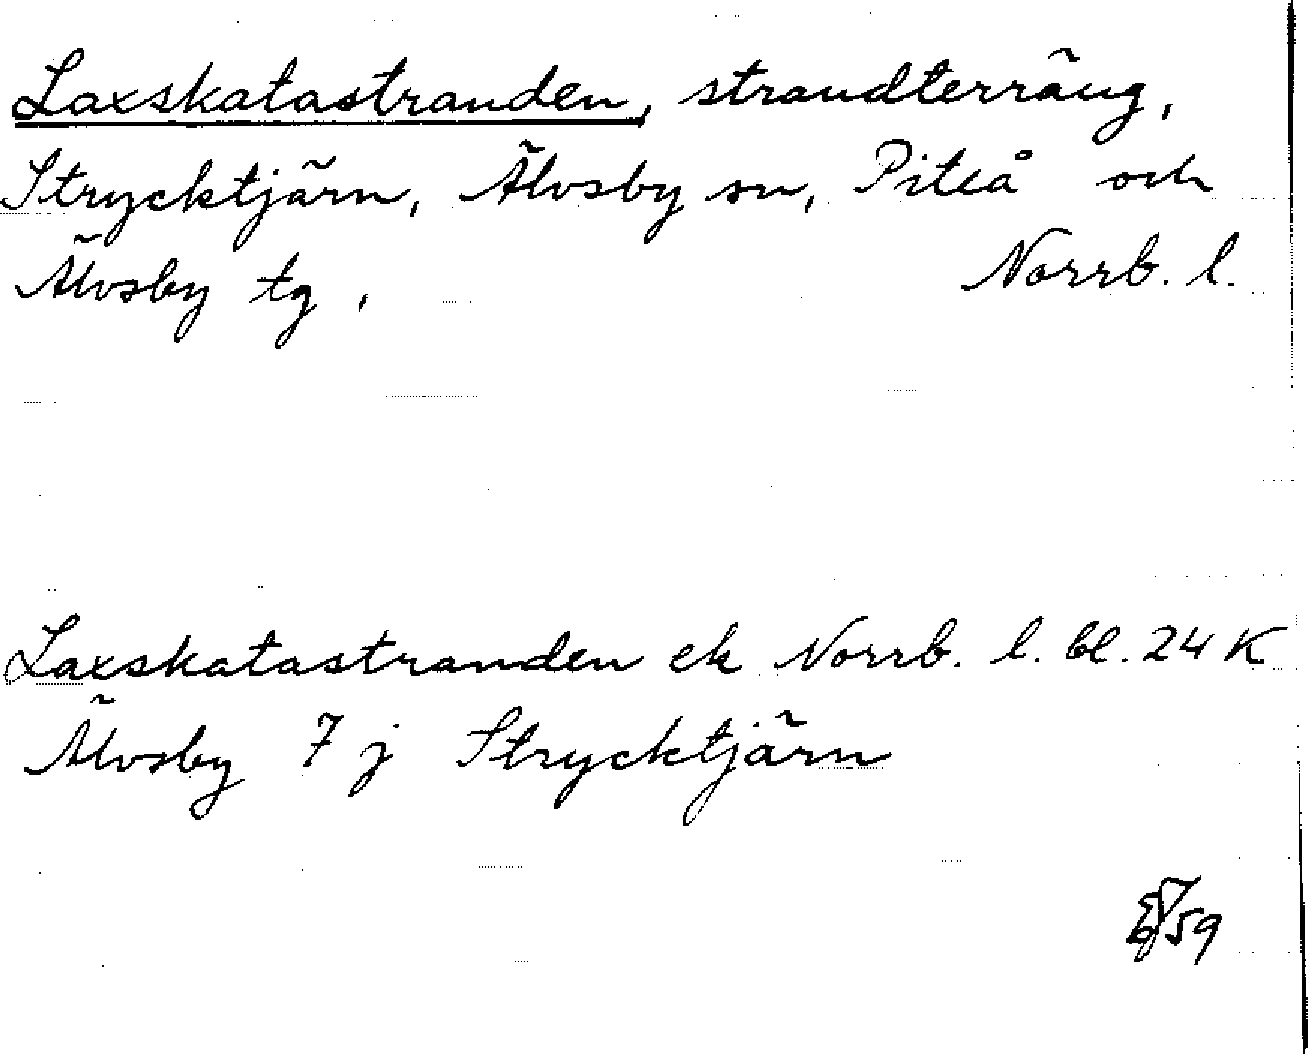 Laxskatastranden, strandterräng,
Strycktjärn, Älvsby sn, Piteå och
Älvsby tg, Norrb. l.
Laxskatastranden ek Norrb. l. bl. 24 K
Älvsby 7 j Strycktjärn
59